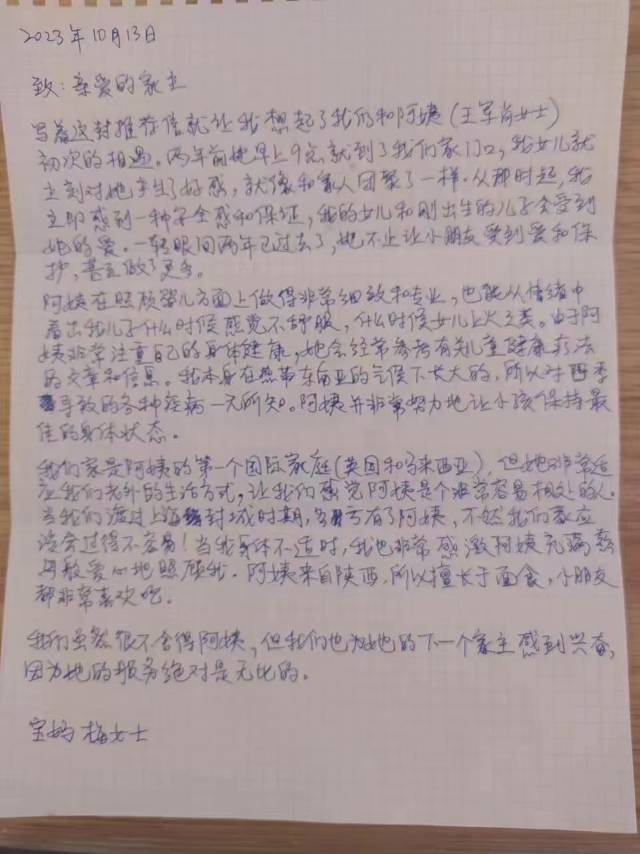 2023年10月13日
致：亲爱的家主
写着这封推荐信就让我想起了我们和阿姨（王军肖女士）
初次的相遇。两年前她早上9点就到了我们家门口，我女儿就
立刻对她产生了好感，就像和家人团聚了一样。从那时起，我
立即感到一种安全感和保证，我的女儿和刚出生的儿子会受到
她的爱。一转眼间两年已过去了，她不止让小朋友受到爱和保
护，甚至做了更多。
阿姨在照顾婴儿方面上做得非常细致和专业，也能从情绪中
看出我儿子什么时候感觉不舒服，什么时候女儿上火之类。由于阿
姨非常注重自己的身体健康，她会经常参考有关儿童健康疗法
的文章和信息。我本身在热带东南亚的气候下长大的，所以对四季
导致的各种症病一无所知。阿姨并非常努力地让小孩保持最
佳的身体状态。
我们家是阿姨的第一个国际家庭（英国和马来西亚），但她非常适
应我们老外的生活方式，让我们感觉阿姨是个非常容易相处的人。
当我们渡过上海封城时期，多亏有了阿姨，不然我们家应
该会过得不容易！当我身体不适时，我也非常感激阿姨充满慈
母般爱心地照顾我。阿姨来自陕西，所以擅长于面食，小朋友
都非常喜欢吃。
我们虽然很不舍得阿姨，但我们也为她的下一个家主感到兴奋，
因为她的服务绝对是无比的。
宝妈 梅女士